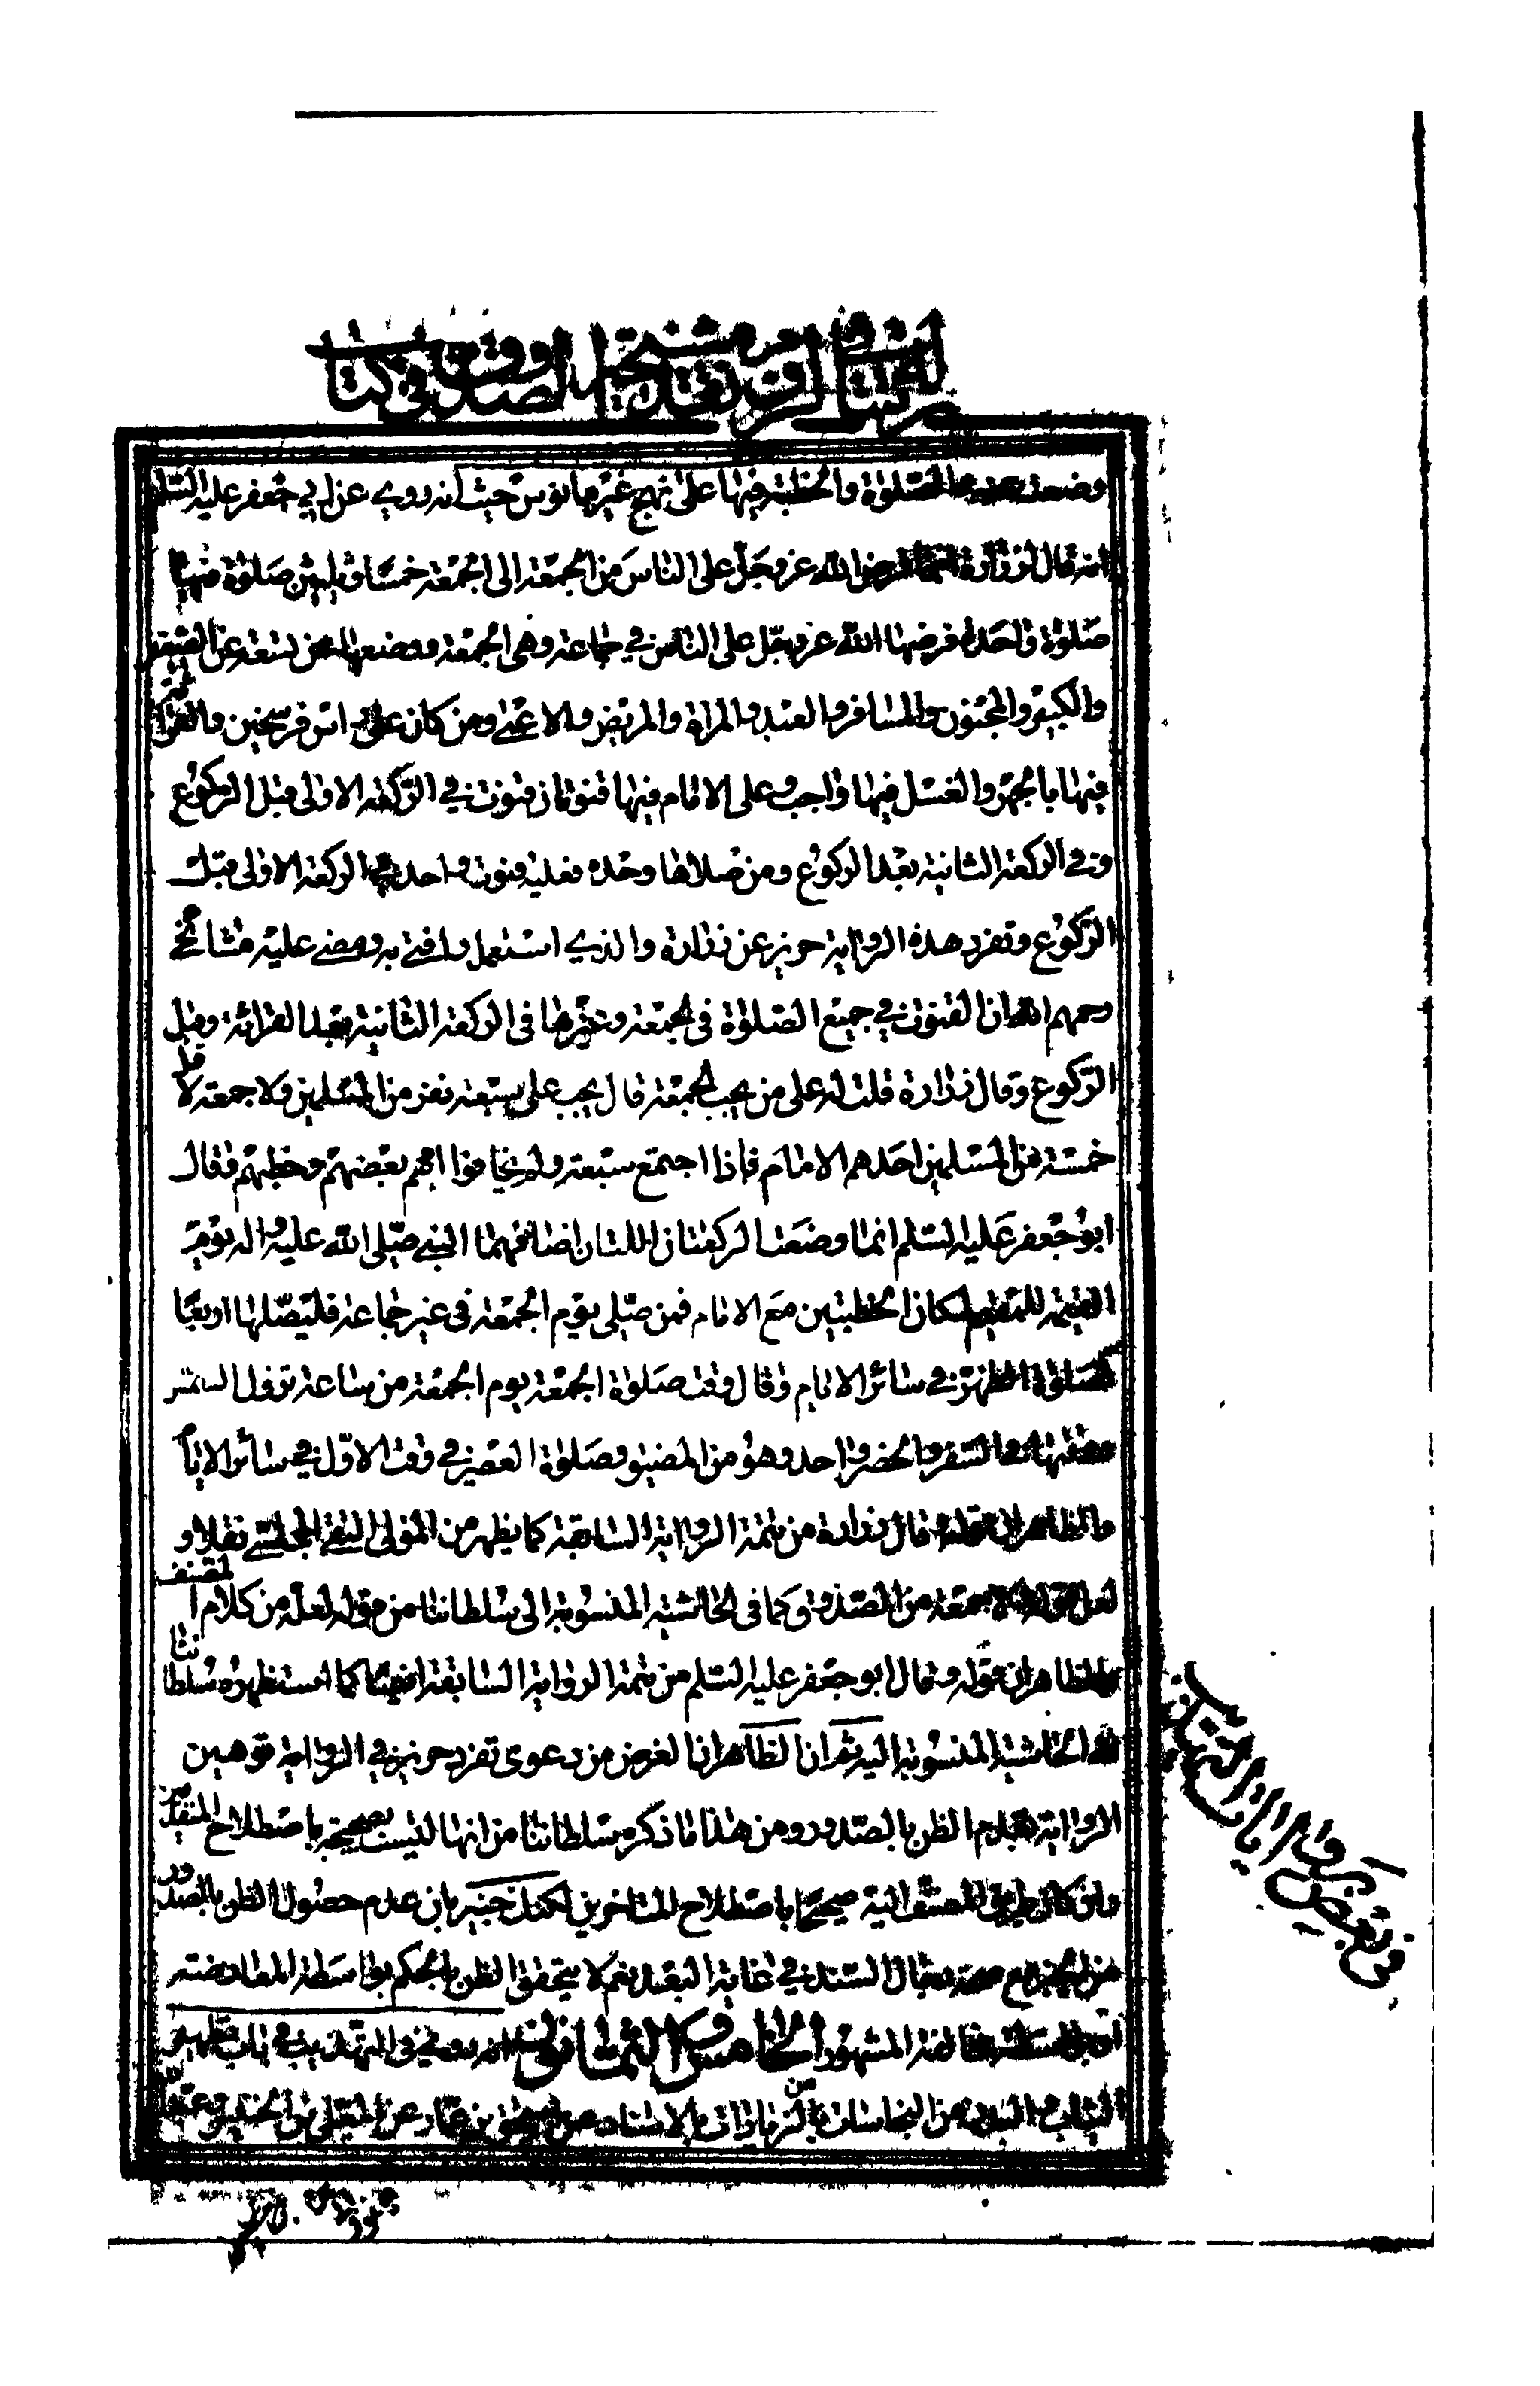 وضعت الصلوة والخطبة فيها على نهج غير مانوس حيث انه روى عن ابي جعفر عليه السلم
انه قال لزرارة انما فرض الله عز وجل على الناس من الجمعة الى الجمعة خمسا وثلثين صلوة منها
صلوة واحدة فرضها الله عز وجل على الناس في جماعة وهى الجمعة ووضعها عن تسعة عن الصغير
والكبير والمجنون والمسافر والعبد والمراة والمريض والاعمى ومن كان على راس فرسخين والقرائة
فيها بالجهر والغسل فيها واجب وعلى الامام فيها قنوتان قنوت في الركعة الاولى قبل الركوع
وفى الركعة الثانية بعد الركوع ومن صلاها وحده فعليه قنوت واحد في الركعة الاولى قبل
الركوع وتفرد بهذه الرواية حريز عن زرارة والذي استعمل وافتى به ومضى عليه مشائخي
رحمهم الله ان القنوت في جميع الصلوة فى الجمعة وغيرها فى الركعة الثانية بعد القرائة وقبل
الركوع وقال زرارة قلت له على من يجب الجمعة قال يجب على سبعة نفر من المسلمين ولا جمعة لاقل
خمسة من المسلمين احدهم الامام فاذا اجتمع سبعة ولم يخافوا امهم بعضهم وخطبهم وقال
ابو جعفر عليه السلم انما وضعت الركعتان اللتان اضافهما النبي صلى الله عليه واله يوم
الجمعة للمقيم لمكان الخطبتين مع الامام فمن صلى يوم الجمعة فى غير جماعة فليصلها اربعا
كصلوة الظهر في سائر الايام وقال وقت صلوة الجمعة يوم الجمعة من ساعة تزول الشمس
ووقتها في السفر والحضر واحد وهو من المضيق وصلوة العصر في وقت الاولى في سائر الايام
والظاهر ان قوله قال زرارة من تتمة الرواية السابقة كما يظهر من المولى التقى المجلسي نقلا و
لعل قوله ولا جمعة من الصدوق كما فى الحاشية المنسوبة الى سلطاننا من قوله لعله من كلام المصنف
والظاهر ان قوله وقال ابو جعفر عليه السلم من تتمة الرواية السابقة ايضا كما استظهره سلطاننا
في الحاشية المنسوبة اليه ثم ان الظاهر ان الغرض من دعوى تفرد حريز في الرواية توهين
الرواية بعدم الظن بالصدور ومن هذا ما ذكره سلطاننا من انها ليست بصحيحة باصطلاح المتقدمين
وان كان طريق المصنف اليه صحيحا باصطلاح المتاخرين لكنك خبير بان عدم حصول الظن بالصدور
من الخبر مع صحة رجال السند في غاية البعد نعم لا يتحقق الظن بالحكم بواسطة المعارضة
المشهور الخامس والثمانون انه روى فى التهذيب في باب تطهير
الثياب والبدن من النجاسات بالاسناد عن اسحق بن عمار عن المعلى بن الخنيس